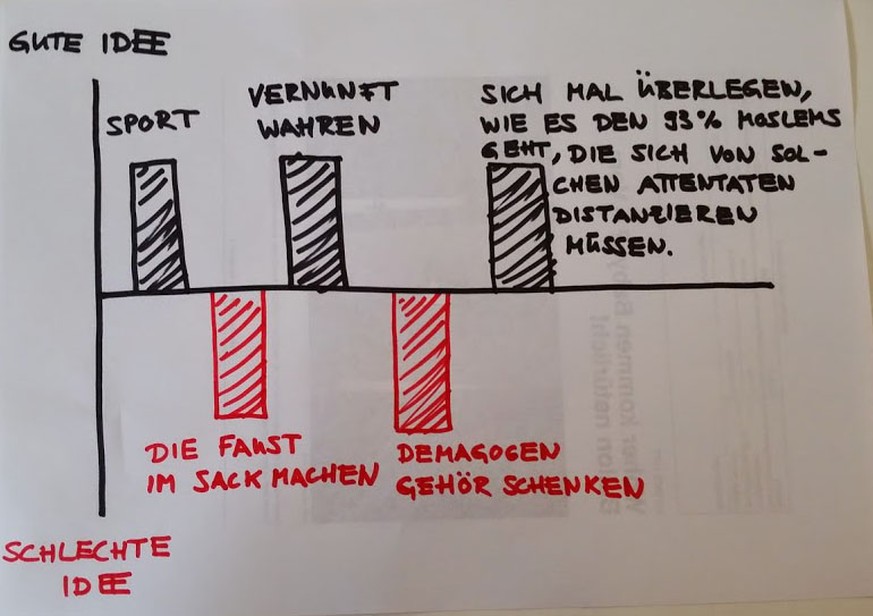 GUTE IDEE
SPORT
VERNUNFT
WAHREN
SICH MAL ÜBERLEGEN,
WIE ES DEN 93% MOSLEMS
GEHT, DIE SICH VON SOL-
CHEN ATTENTATEN
DISTANZIEREN
MÜSSEN.
DIE FAUST
IM SACK MACHEN
DEMAGOGEN
GEHÖR SCHENKEN
SCHLECHTE
IDEE